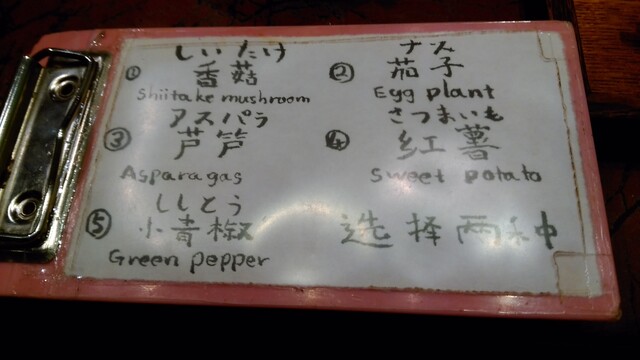 しいたけ
① 香菇
Shiitake mushroom
ナス
② 茄子
Egg plant
アスパラ
③ 芦笋
Asparagas
さつまいも
④ 红薯
Sweet potato
ししとう
⑤ 小青椒
Green pepper
选择两种